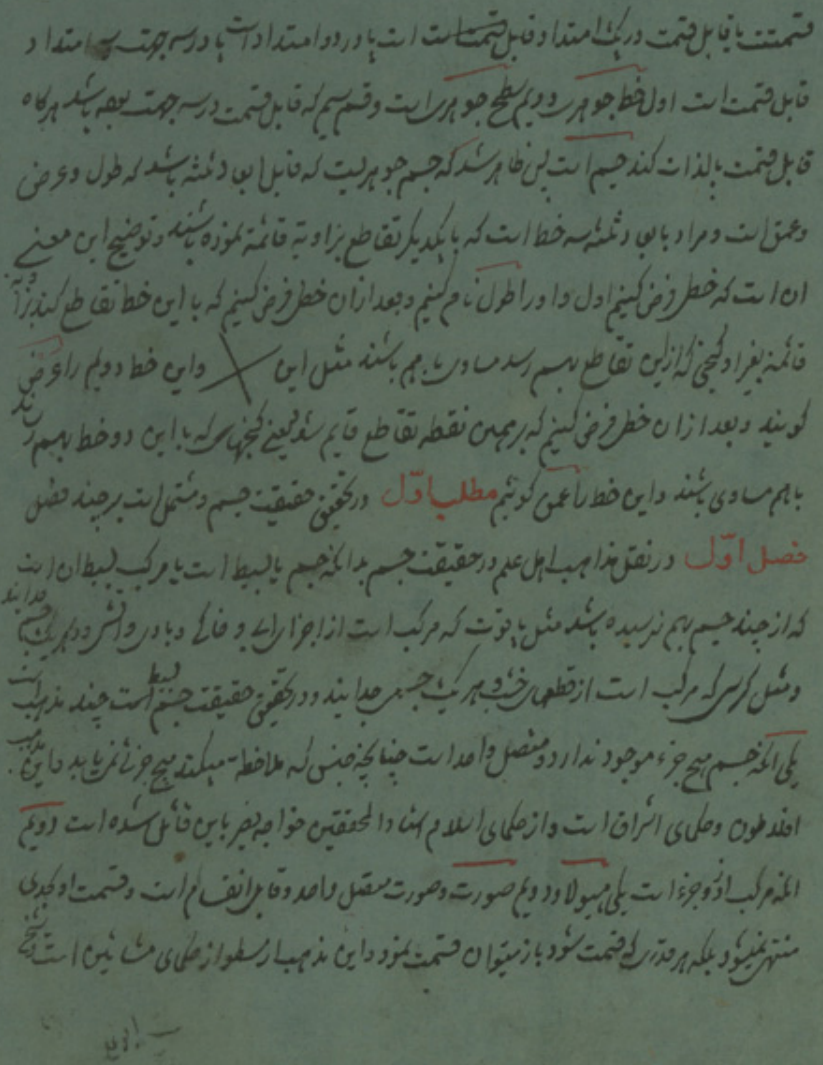 قسمتست یا قابل قسمت در یک امتداد قابل قسمتست است یا در دو امتداد است یا در سه جهت امتداد
قابل قسمت است اول خط جوهری و دویم سطح جوهری است و قسم سیم که قابل قسمت در سه جهت بوده باشد هرگاه
قابل قسمت بالذات کند جسم است پس ظاهر شد که جسم جوهریست که قابل ابعاد ثلثه باشد که طول و عرض
و عمق است و مراد بابعاد ثلثه سه خط است که با یکدیگر تقاطع بزاویه قائمه نموده باشند و توضیح این معنے
ان است که خطی فرض کنیم اول و او را طول نام کنیم و بعد از ان خطی فرض کنیم که با این خط تقاطع کند بزاویه
قائمه یعنی دو کنجی که ازین تقاطع بهم رسد مساوی با هم باشند مثل این و این خط دویم را عرض
گویند و بعد از ان خطی فرض کنیم که بر همین نقطه تقاطع قایم شود یعنی کنجهای که با این دو خط بهم رسد
با هم مساوی باشند و این خط را عمق گوئیم مطلب اوّل در تحقیق حقیقت جسم و مشتمل است بر چند فصل
فصل اوّل در نقل مذاهب اهل علم در حقیقت جسم بدانکه جسم یا بسیط است یا مرکب بسیط ان است
که از چند جسم بهم نرسیده باشد مثل یاقوت که مرکب است از اجزای ابی و خاکی و بادی و اتشی و هر یک جسم جدایند
و مثل کرسی که مرکب است از قطعهای خشب و هر یک جسمی جدایند و در تحقیق حقیقت جسم بسیط است چند مذهب است
یکی انکه جسم هیچ جزء موجود ندارد و متصل واحد است چنانچه حس که ملاحظه میکند هیچ جزئی نمی یابد و این مذهب
افلاطون و حکمای اشراق است و از حکمای اسلام استاد المحققین خواجه نصیر باین قائل شده است دویم
انکه مرکب از دو جزء است یکی هیولا و دویم صورت و صورت متصل واحد و قابل انقسام است و قسمت او بحدی
منتهی نمیشود بلکه هر قدری که قسمت شود باز میتوان قسمت نمود و این مذهب ارسطو از حکمای مشائین است و شیخ